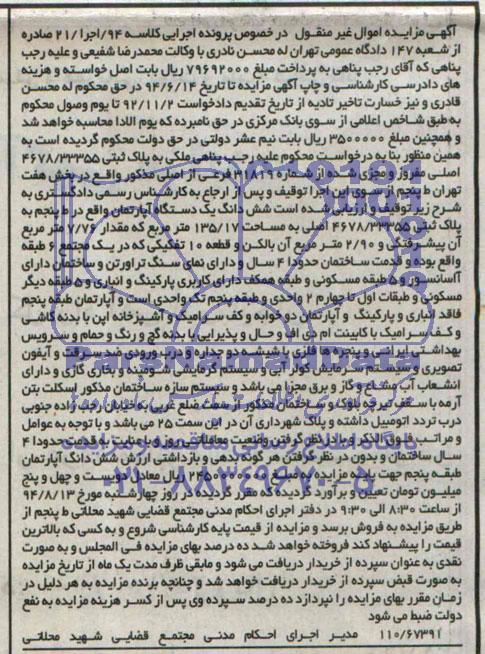 آگهی مزایده اموال غیر منقول در خصوص پرونده اجرایی کلاسه ۹۴/اجرا/۲۱ صادره
از شعبه ۱۴۷ دادگاه عمومی تهران له محسن نادری با وکالت محمدرضا شفیعی و علیه رجب
پناهی که آقای رجب پناهی به پرداخت مبلغ ۷۹۶۹۲۰۰۰ ریال بابت اصل خواسته و هزینه
های دادرسی کارشناسی و چاپ آگهی مزایده تا تاریخ ۹۴/۶/۱۴ در حق محکوم له محسن
قادری و نیز خسارت تاخیر تادیه از تاریخ تقدیم دادخواست ۹۲/۱۱/۲ تا یوم وصول محکوم
به طبق شاخص اعلامی از سوی بانک مرکزی در حق نامبرده که یوم الادا محاسبه خواهد شد
و همچنین مبلغ ۳۵۰۰۰۰۰ ریال بابت نیم عشر دولتی در حق دولت محکوم گردیده است به
همین منظور بنا به درخواست محکوم علیه رجب پناهی ملکی به پلاک ثبتی ۴۶۷۸/۳۳۳۵۵
اصلی مفروز و مجزی شده از شماره ۳۱۸۱۹ فرعی از اصلی مذکور واقع در بخش هفت
تهران ط پنجم از سوی این اجرا توقیف و پس از ارجاع به کارشناس رسمی دادگستری به
شرح زیر توقیف و ارزیابی شده است شش دانگ یک دستگاه آپارتمان واقع در ط پنجم به
پلاک ثبتی ۴۶۷۸/۳۳۳۵۵ اصلی به مساحت ۱۳۵/۱۷ متر مربع که مقدار ۷/۷۶ متر مربع
آن پیشرفتگی و ۲/۹۰ متر مربع آن بالکن و قطعه ۱۰ تفکیکی که در یک مجتمع ۶ طبقه
واقع بوده و قدمت ساختمان حدودا ۴ سال و دارای نمای سنگ تراورتن و ساختمان دارای
آسانسور و ۵ طبقه مسکونی و طبقه همکف دارای کاربری پارکینگ و انباری و ۵ طبقه دیگر
مسکونی و طبقات اول تا چهارم ۲ واحدی و طبقه پنجم تک واحدی است و آپارتمان طبقه پنجم
فاقد انباری و پارکینگ و آپارتمان دو خوابه و کف سرامیک و آشپزخانه اپن با بدنه کاشی
و کف سرامیک با کابینت ام دی اف و حال و پذیرایی با بدنه گچ و رنگ و حمام و سرویس
بهداشتی ایرانی و پنجره ها فلزی با شیشه دو جداره و درب ورودی ضد سرقت و آیفون
تصویری و سیستم سرمایش کولر آبی و سیستم گرمایش شومینه و بخاری گازی و دارای
انشعاب آب مشاع و گاز و برق مجزا می باشد و سیستم سازه ساختمان مذکور اسکلت بتن
آرمه با سقف تیرچه بلوک و ساختمان مذکور از سمت ضلع غربی با خیابان رجب زاده جنوبی
درب تردد اتومبیل داشته و پلاک شهرداری آن در این سمت ۲۵ می باشد و با توجه به عوامل
و مراتب فوق الذکر و با در نظر گرفتن وضعیت معاملاتی روز و با عنایت به قدمت حدودا ۴
سال ساختمان و بدون در نظر گرفتن هر گونه بدهی و بازداشتی ارزش شش دانگ آپارتمان
طبقه پنجم جهت پایه مزایده به مبلغ ریال معادل دویست و چهل و پنج
میلیون تومان تعیین و برآورد گردیده که مقرر گردیده در روز چهارشنبه مورخ ۹۴/۸/۱۳
از ساعت ۸:۳۰ الی ۹:۳۰ در دفتر اجرای احکام مدنی مجتمع قضایی شهید محلاتی ط پنجم از
طریق مزایده به فروش برسد و مزایده از قیمت پایه کارشناسی شروع و به کسی که بالاترین
قیمت را پیشنهاد کند فروخته خواهد شد ده درصد بهای مزایده فی المجلس و به صورت
نقدی به عنوان سپرده از خریدار دریافت می شود و مابقی ظرف مدت یک ماه از تاریخ مزایده
به صورت قبض سپرده از خریدار دریافت خواهد شد و چنانچه برنده مزایده به هر دلیل در
زمان مقرر بهای مزایده را نپردازد ده درصد سپرده وی پس از کسر هزینه مزایده به نفع
دولت ضبط می شود
۱۱۰/۶۷۳۹۱ مدیر اجرای احکام مدنی مجتمع قضایی شهید محلاتی
۰۲۱-۸۸۳۴۹۶۷۰-۵